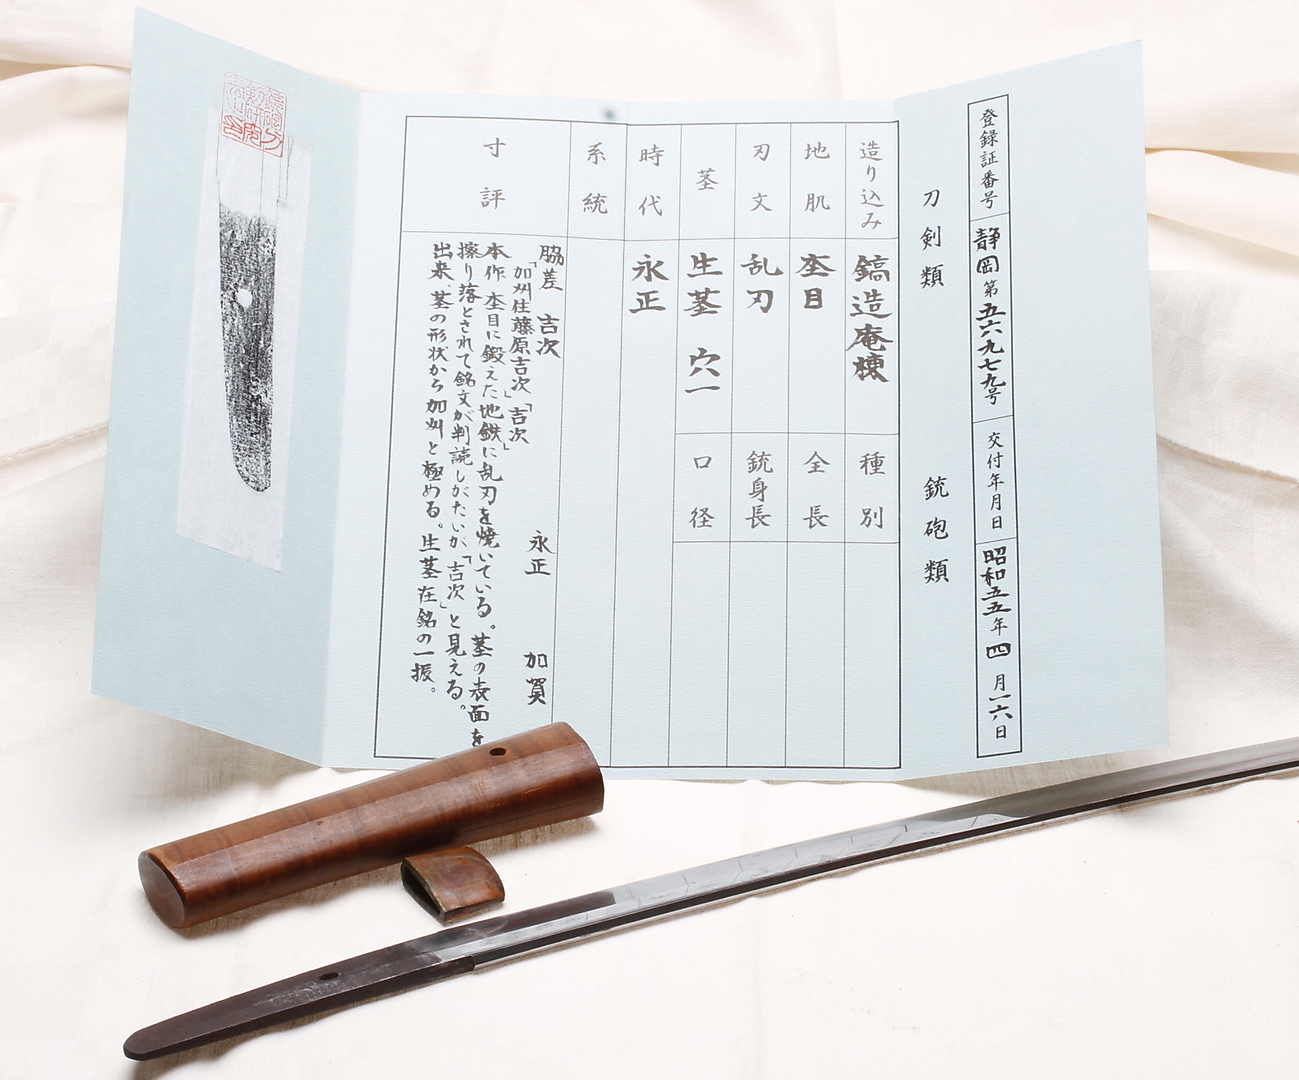 登録証番号 静岡第五六九七九号 交付年月日 昭和五五年四月一六日
刀剣類 銃砲類
造り込み 鎬造庵棟 種別
地肌 杢目 全長
刃文 乱刃 銃身長
茎 生茎 穴一 口径
時代 永正
系統
寸評
脇差 吉次 永正 加賀
「加州住藤原吉次」「吉次」
本作、杢目に鍛えた地鉄に乱刃を焼いている。茎の表面を
擦り落とされて銘文が判読しがたいが「吉次」と見える。
出来、茎の形状から加州と極める。生茎在銘の一振。